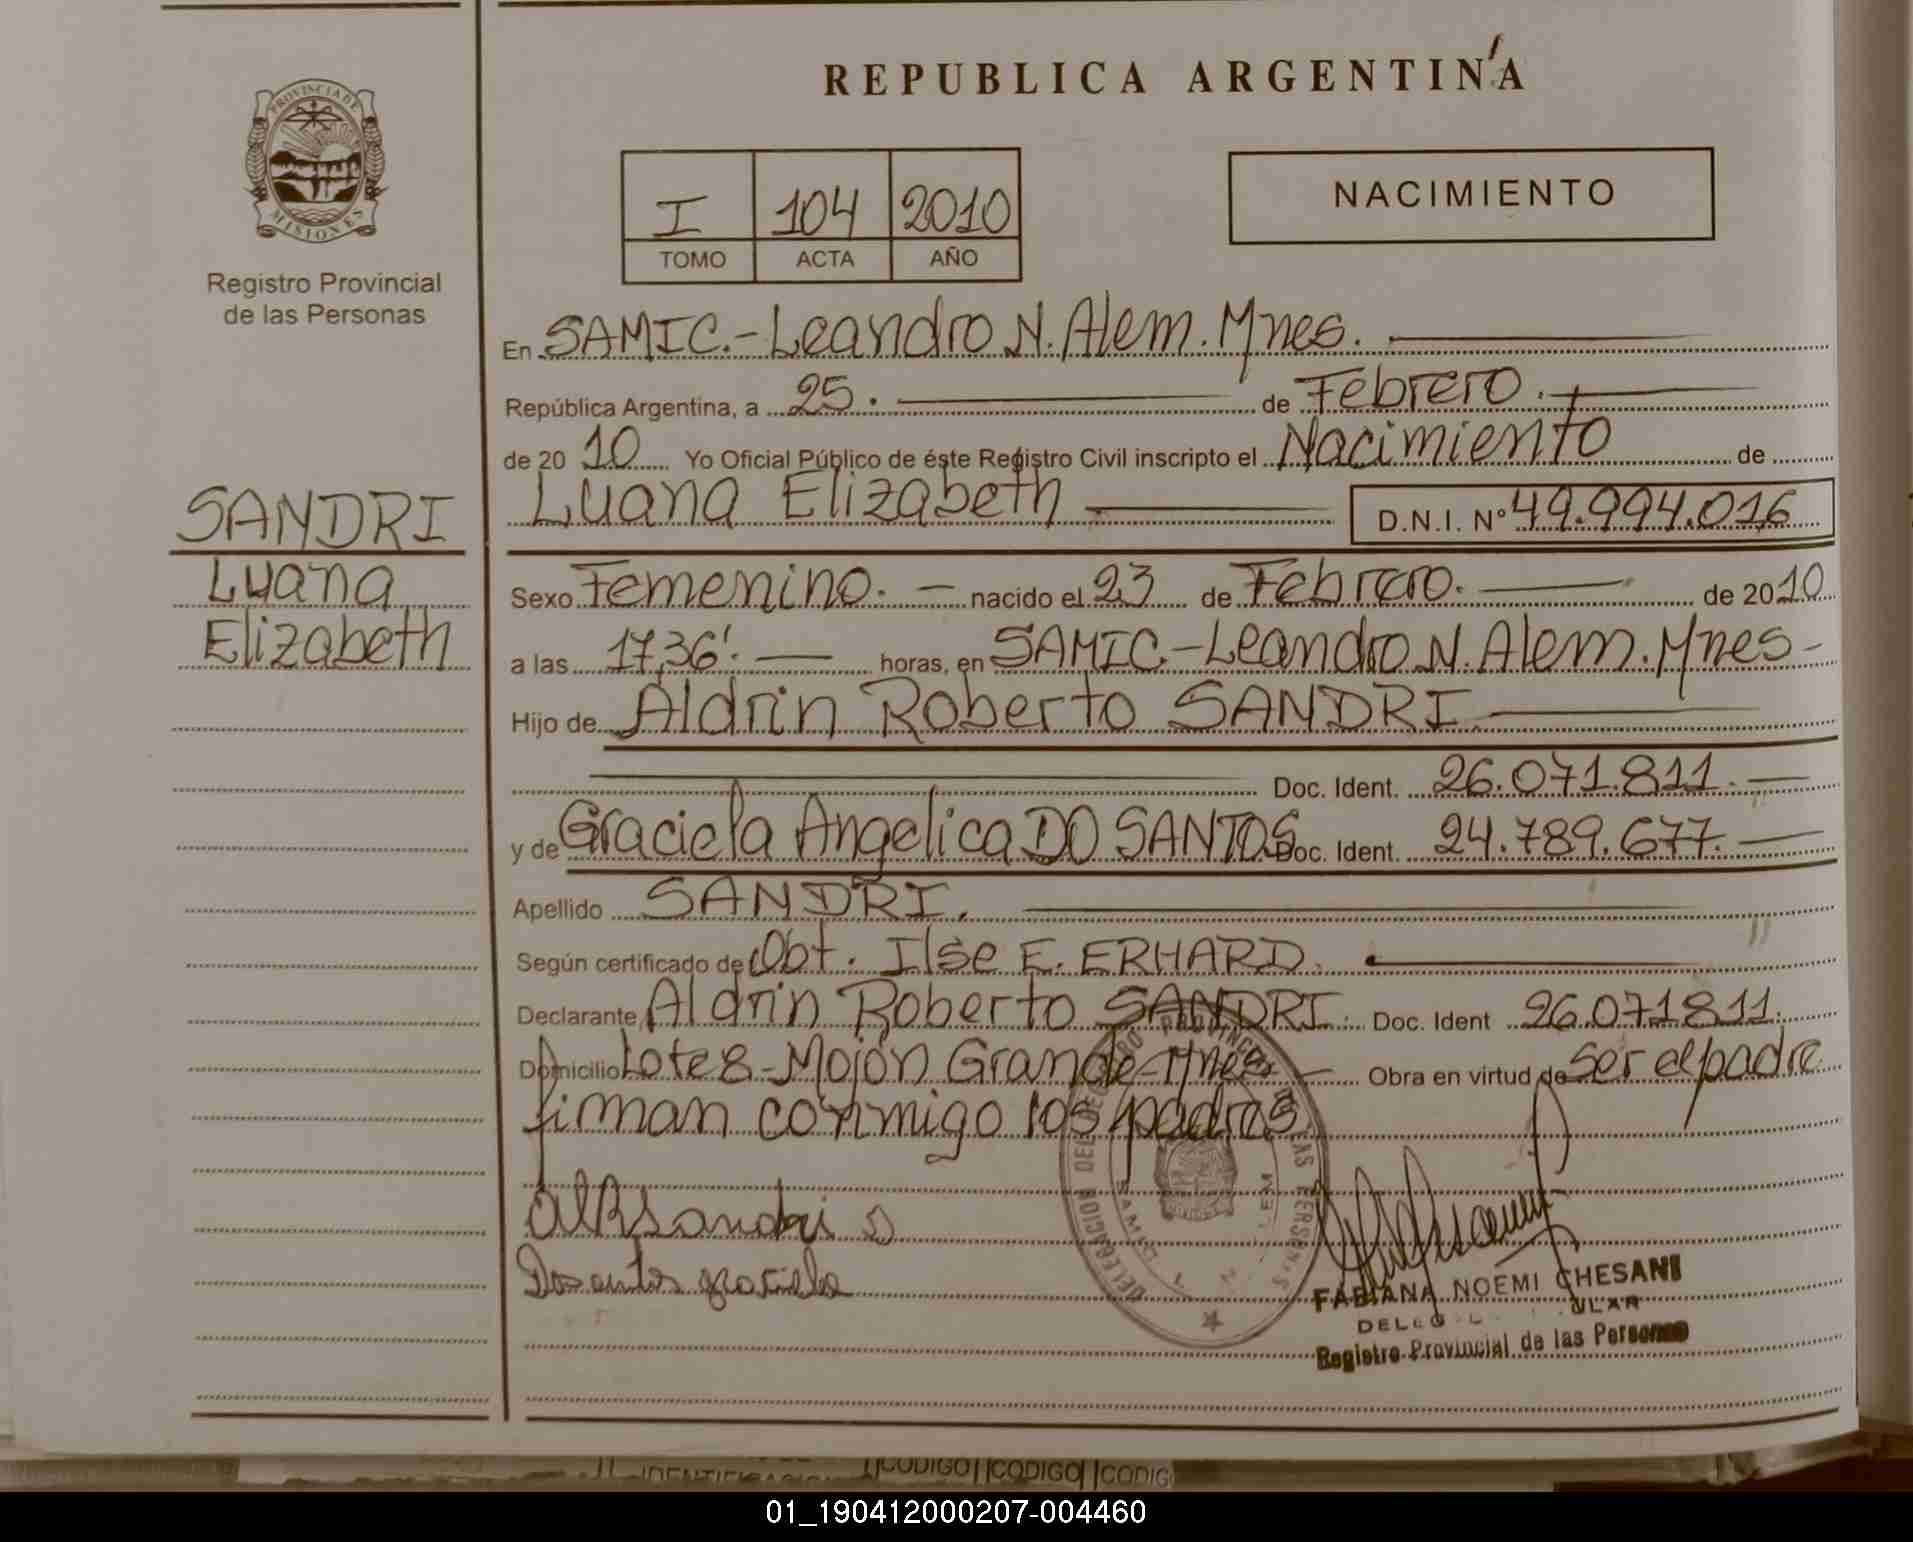 REPUBLICA ARGENTINA
PROVINCIA DE
MISIONES
Registro Provincial
de las Personas
I 104 2010
TOMO ACTA AÑO
NACIMIENTO
En SAMIC.-Leandro N. Alem. Mnes.
República Argentina, a 25. de Febrero.
de 20 10 Yo Oficial Público de éste Registro Civil inscripto el Nacimiento de
Luana Elizabeth D.N.I. N° 49.994.016
SANDRI
Luana
Elizabeth
Sexo Femenino. nacido el 23 de Febrero. de 2010
a las 17,36'. horas, en SAMIC.-Leandro N. Alem. Mnes-
Hijo de Aldrin Roberto SANDRI.
Doc. Ident. 26.071.811.
y de Graciela Angelica DO SANTOS Doc. Ident. 24.789.677.
Apellido SANDRI.
Según certificado de Obt. Ilse E. ERHARD.
Declarante Aldrin Roberto SANDRI. Doc. Ident 26.071.811.
Domicilio Lote 8-Mojón Grande-Mnes Obra en virtud de ser el padre
firman conmigo los padres
DELEGACION DEL REGISTRO PROVINCIAL DE LAS PERSONAS
SAMIC L. N. ALEM
Dos antos graciela
FABIANA NOEMI CHESANI
Registro Provincial de las Personas
CODIGO CODIGO CODIG
01_190412000207-004460